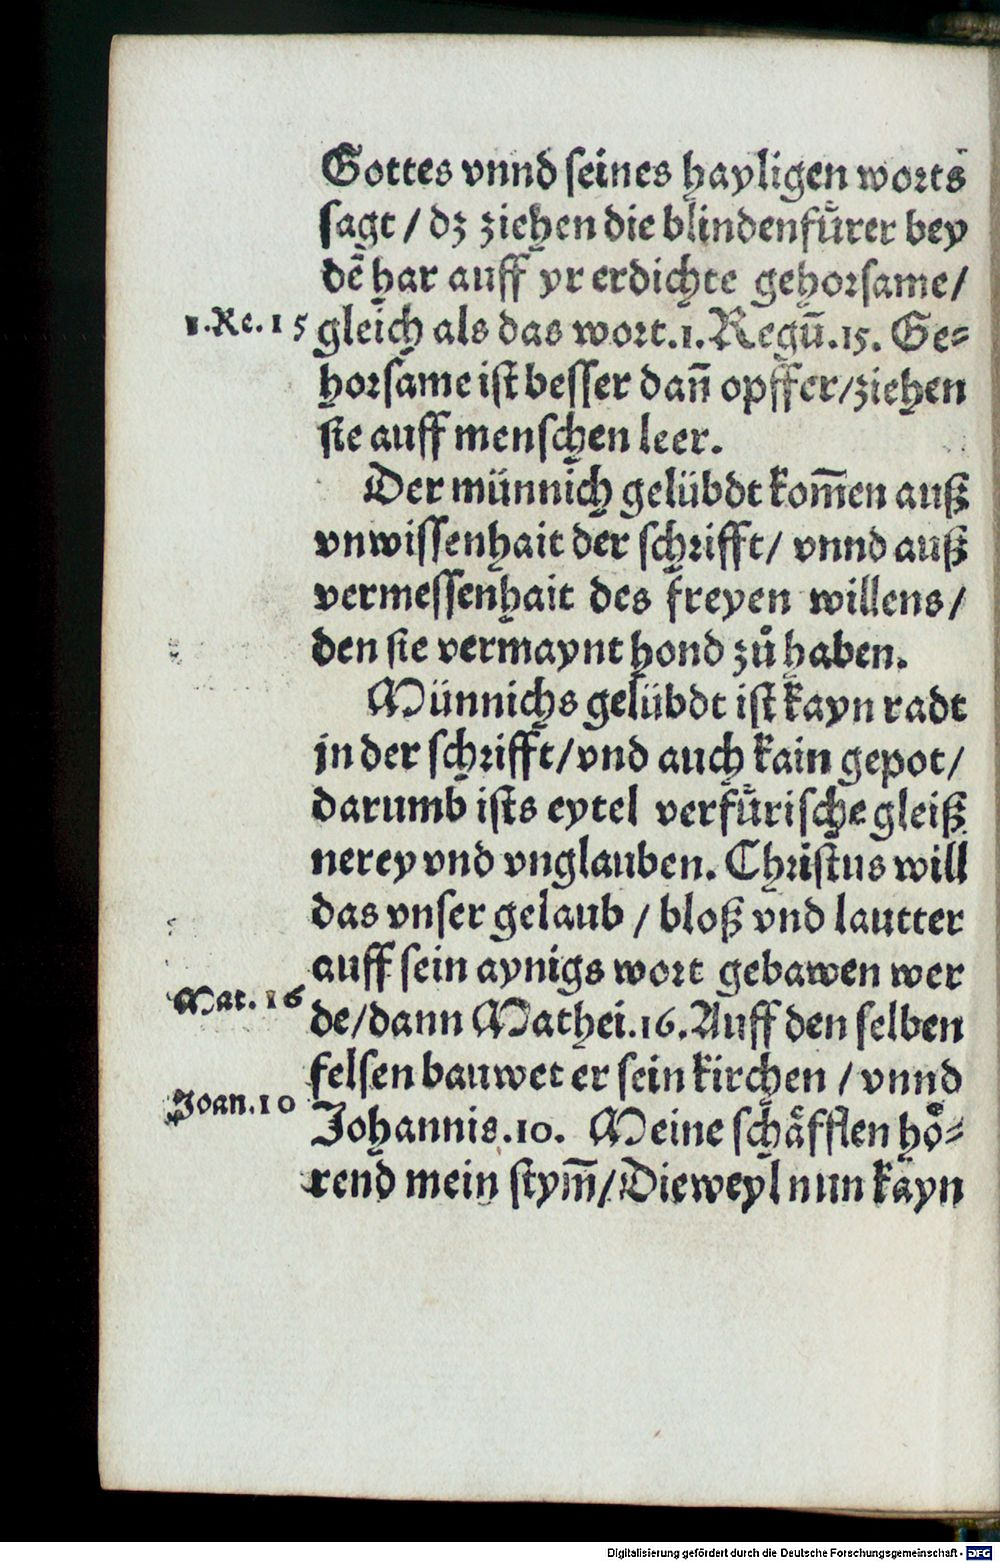 Gottes vnnd seines hayligen worts
sagt / dz ziehen die blindenfuͤrer bey
dẽ har auff yr erdichte gehorsame /
1.Re.15
gleich als das wort.1.Regũ.15. Ge-
horsame ist besser dañ opffer/ziehen
sie auff menschen leer.
Der münnich gelübdt kom̃en auß
vnwissenhait der schrifft / vnnd auß
vermessenhait des freyen willens /
den sie vermaynt hond zů haben.
Münnichs gelübdt ist kayn radt
in der schrifft/vnd auch kain gepot/
darumb ists eytel verfuͤrische gleiß
nerey vnd vnglauben. Christus will
das vnser gelaub / bloß vnd lautter
auff sein aynigs wort gebawen wer
Mat.16
de/dann Mathei.16. Auff den selben
felsen bauwet er sein kirchen / vnnd
Joan.10
Johannis.10. Meine schaͤfflen hoͤ-
rend mein stym̃/Dieweyl nun kayn
Digitalisierung gefördert durch die Deutsche Forschungsgemeinschaft - DFG